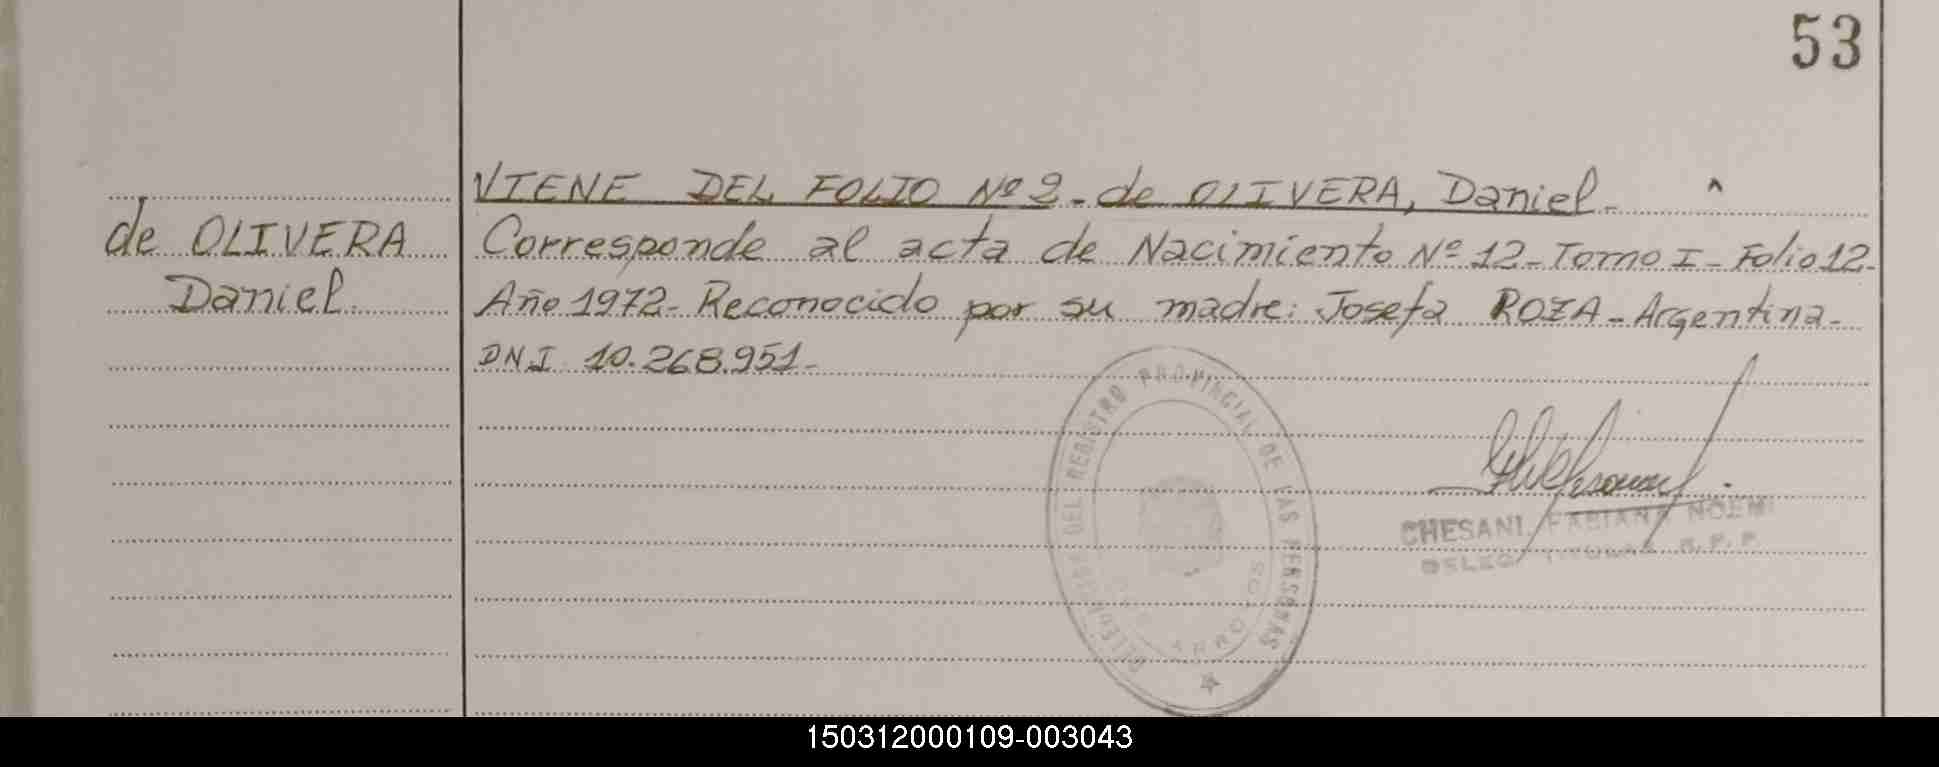 53
VIENE DEL FOLIO Nº 2 - de OLIVERA, Daniel -
de OLIVERA
Daniel.
Corresponde al acta de Nacimiento Nº 12 - Tomo I - Folio 12 -
Año 1972 - Reconocido por su madre: Josefa ROZA - Argentina -
DNI 10.268.951 -
DEL REGISTRO PROVINCIAL DE LAS PERSONAS
ARROYOS
CHESANI, FABIANA NOEMI
DELEG. TITULAR R. P. P.
150312000109-003043